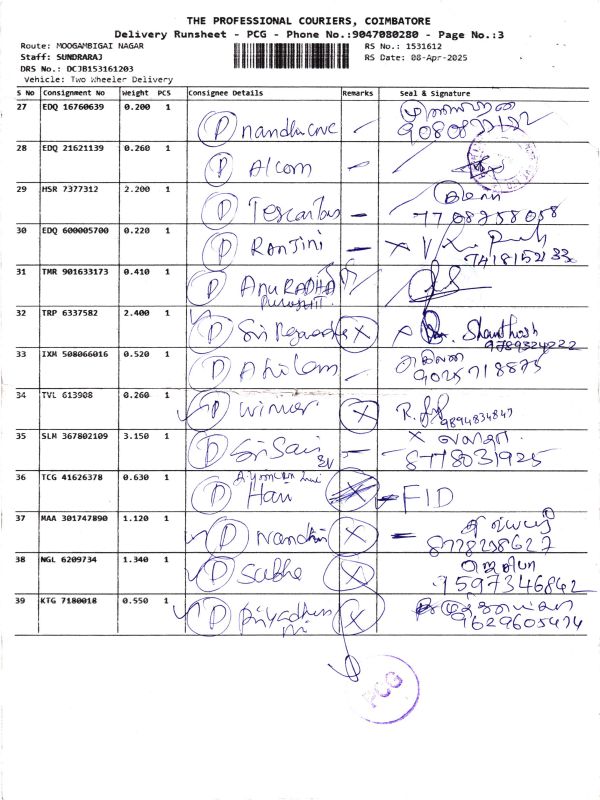 THE PROFESSIONAL COURIERS, COIMBATORE
Delivery Runsheet - PCG - Phone No.:9047080280 - Page No.:3
Route: MOOGAMBIGAI NAGAR RS No.: 1531612
Staff: SUNDRARAJ RS Date: 08-Apr-2025
DRS No.: DCJB153161203
Vehicle: Two Wheeler Delivery
S No Consignment No Weight PCS Consignee Details Remarks Seal & Signature
27 EDQ 16760639 0.200 1
D nandhu cnc
28 EDQ 21621139 0.260 1
D Alcom
29 HSR 7377312 2.200 1
D
7708758058
30 EDQ 600005700 0.220 1
D Ranjini
9418152133
31 TMR 901633173 0.410 1
D ANURADHA
32 TRP 6337582 2.400 1
D Shanthosh
9789324222
33 IXM 508066016 0.520 1
D Akilam அகிலன்
9025718875
34 TVL 613908 0.260 1
D winner X
9894834847
35 SLM 367802109 3.150 1
D Sri Sai X
8778031925
36 TCG 41626378 0.630 1
D Hari FID
37 MAA 301747890 1.120 1
D Nandhini X
8778258627
38 NGL 6209734 1.340 1
D Subha X
9597346842
39 KTG 7180018 0.550 1
D Priyadharsini X
9629605474
PCG